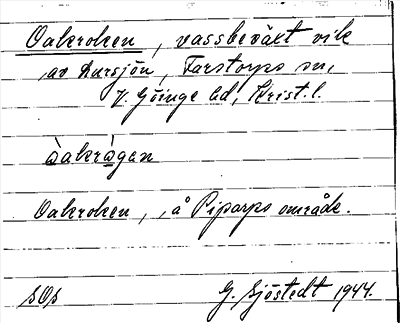 Oakroken, vassbeväxt vik
av Lursjön, Farstorps sn,
V. Göinge hd, Krist. l.
òakrògan
Oakroken, å Piparps område.
SOs G. Sjöstedt 1944.